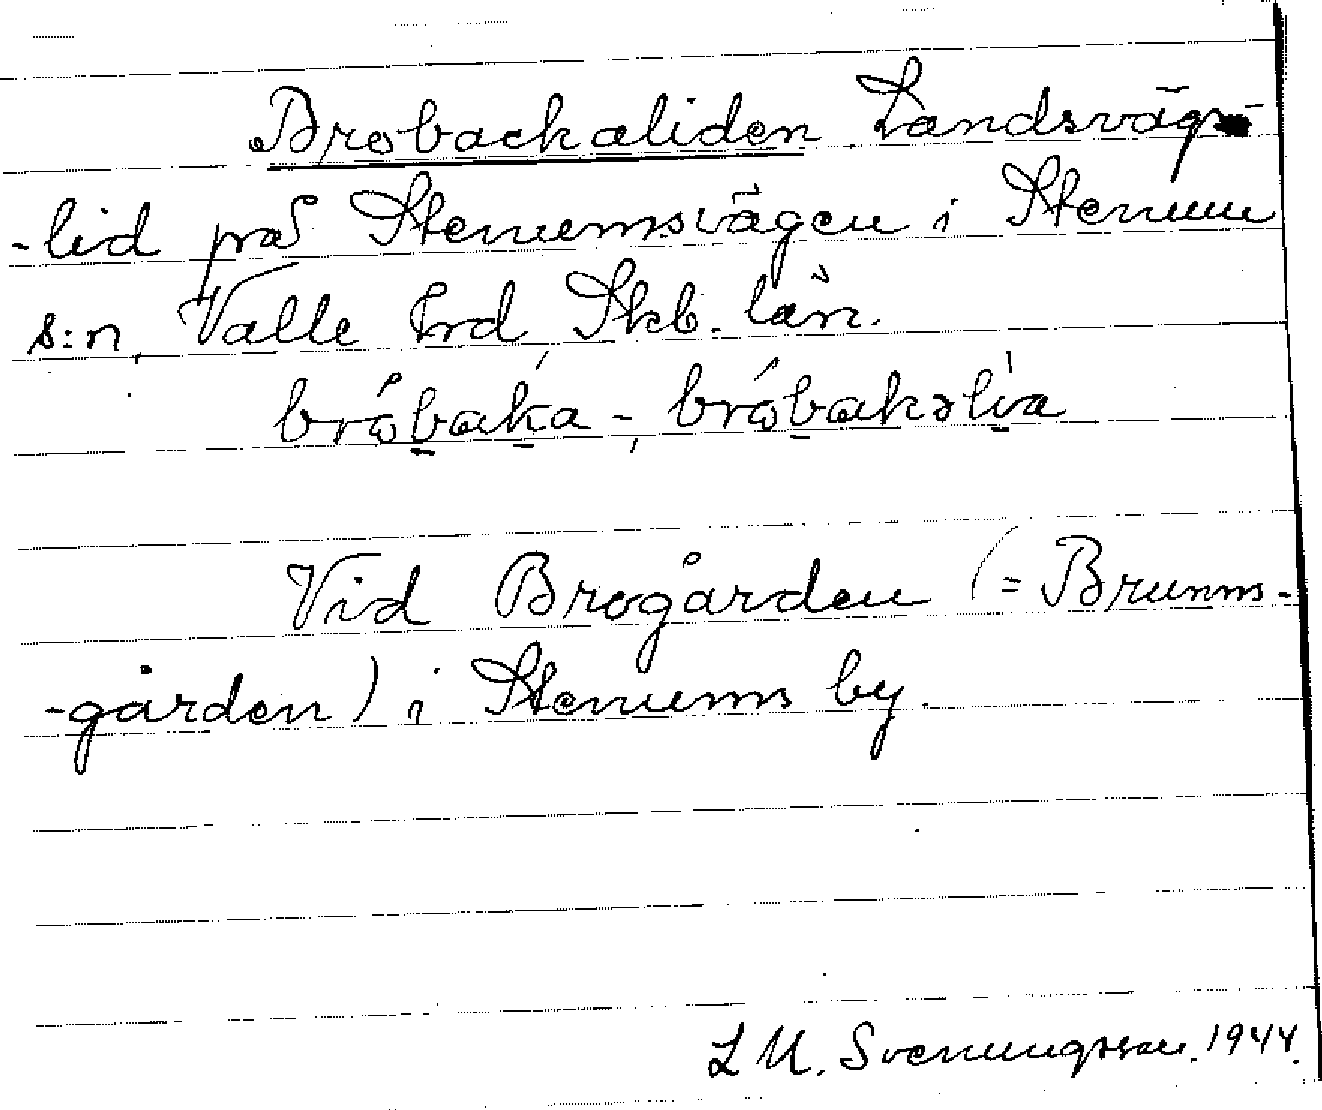 Brobackaliden Landsvägs-
-lid på Stenumsvägen i Stenum
s:n, Valle hrd, Skb. län.
bróbaka-, bróbakəlia
Vid Brogården (= Brunns-
-gården) i Stenums by.
L M. Svenungsson. 1944.